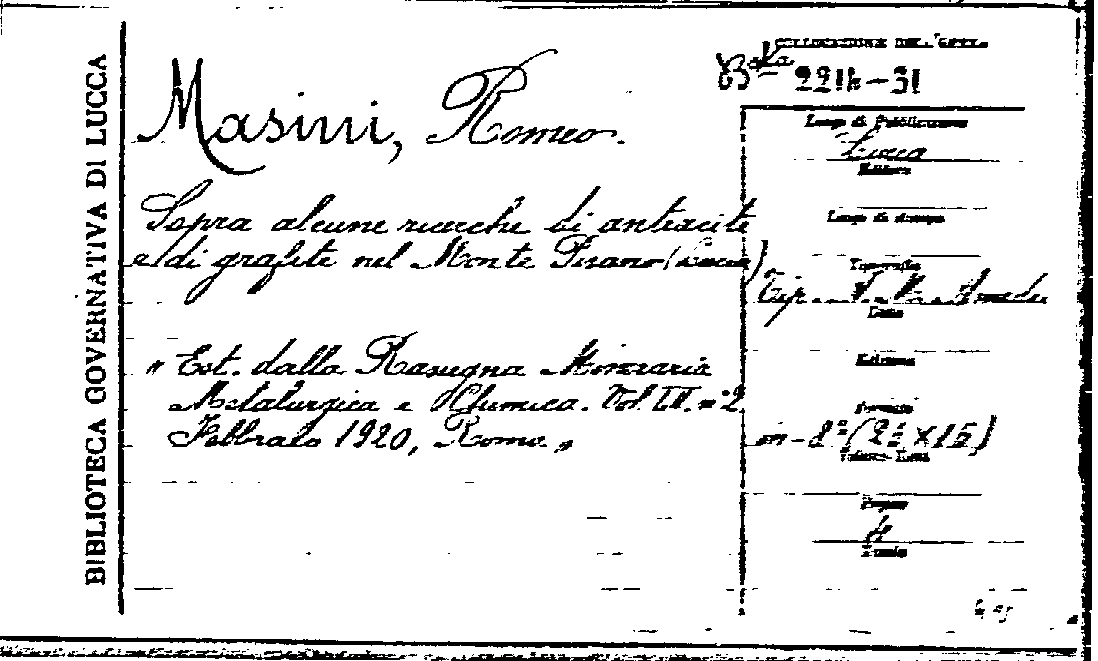 BIBLIOTECA GOVERNATIVA DI LUCCA
COLLOCAZIONE DELL'OPERA
Bta 2214-31
Masini, Romeo.
Sopra alcune ricerche di antracite
e di grafite nel Monte Pisano (Lucca)
" Est. dalla Rassegna Mineraria
Metalurgica e Chimica. Vol. LII. n. 2
Febbraio 1920, Roma "
Luogo di Pubblicazione
Lucca
Editore
Luogo di stampa
Tipografia
Tip. Amedei
Data
Edizione
Formato
in-8º
Pagine
4
Tavole